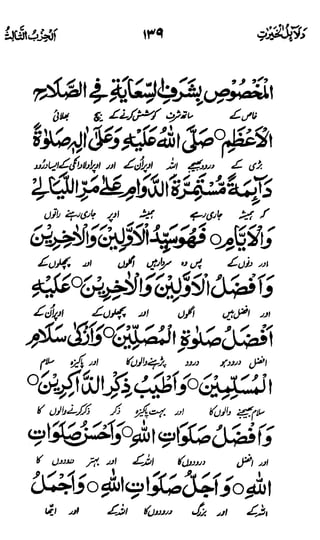 دَلَآئِلُ الْخَيْرَاتِ ١٣٩ اَلْحِزْبُ الثَّالِثُ
الْمَخْصُوْصِ بِشَرَفِ السِّعَايَةِ فِي الصَّلَاحِ
خاص کے ساتھ شرف کوشش کرنے کے بیچ بھلائی
الْاَعْظَمِ ○ صَلَّى اللهُ عَلَيْهِ وَعَلٰى اٰلِهٖ صَلٰوةً
بڑی کے درود بھیجے اللہ اوپر ان کے اور اوپر اولاد انکی کے ایسا درود
دَآئِمَةً مُّسْتَمِرَّةَ الدَّوَامِ عَلٰى مَرِّ اللَّيَالِيْ
کہ ہمیشہ جاری رہے ہمیشہ اوپر جاری رہنے راتوں
وَالْاَيَّامِ ○ فَهُوَ سَيِّدُ الْاَوَّلِيْنَ وَالْاٰخِرِيْنَ
اور دنوں کے پس وہ سردار ہیں اگلوں اور پچھلوں کے
وَاَفْضَلُ الْاَوَّلِيْنَ وَالْاٰخِرِيْنَ ○ عَلَيْهِ
اور افضل ہیں اگلوں اور پچھلوں کے اوپر ان کے
اَفْضَلُ صَلٰوةِ الْمُصَلِّيْنَ ○ وَاَزْكٰى سَلَامِ
افضل درود ہو درود پڑھنے والوں کا اور پاکیزہ سلام
الْمُسَلِّمِيْنَ ○ وَاَطْيَبُ ذِكْرِ الذَّاكِرِيْنَ ○
سلام بھیجنے والوں کا اور بہت پاکیزہ ذکر ذکر کرنے والوں کا
وَاَفْضَلُ صَلَوَاتِ اللهِ ○ وَاَحْسَنُ صَلَوَاتِ
اور افضل درودوں کا اللہ کے اور بہتر درودوں کا
اللهِ ○ وَاَجَلُّ صَلَوَاتِ اللهِ ○ وَاَجْمَلُ
اللہ کے اور بزرگ درودوں کا اللہ کے اور اچھا